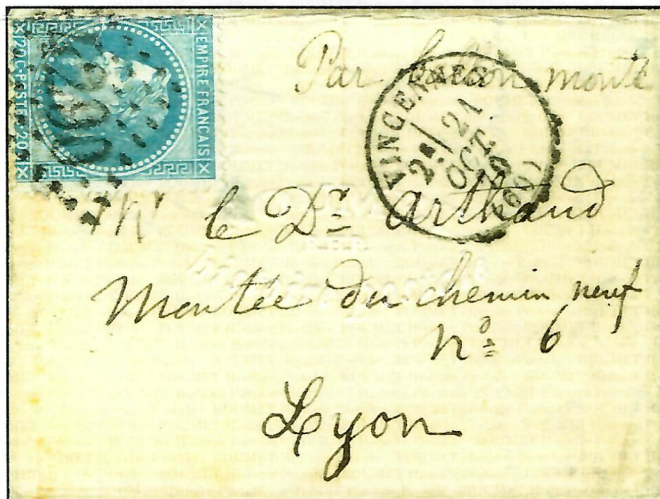 EMPIRE FRANCAIS
20 C POSTE 20 C
Par ballon monté
VINCENNES
2E
21
OCT.
(60)
Mr le Dr Arthaud
Montée du chemin neuf
no 6
Lyon